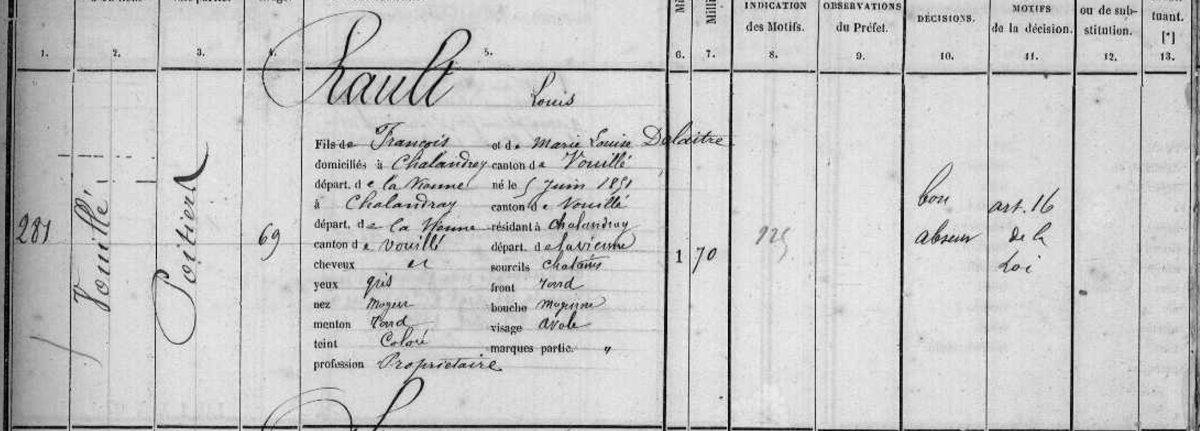 INDICATION
des Motifs.
OBSERVATIONS
du Préfet.
DÉCISIONS.
MOTIFS
de la décision.
ou de sub-
stitution.
tuant.
[*]
1. 2. 3. 4. 5. 6. 7. 8. 9. 10. 11. 12. 13.
Rault Louis
Fils de François et de Marie Louise Delaitre
domiciliés à Chalandray canton de Vouillé
départ. de la Vienne né le 5 Juin 1851
à Chalandray canton de Vouillé
départ. de la Vienne résidant à Chalandray
canton de Vouillé départ. de la vienne
cheveux et sourcils chatains
yeux gris front rond
nez moyen bouche moyenne
menton rond visage ovale
teint Coloré marques partic. "
profession Propriétaire
281
Vouillé
Poitiers
69
1 70
bon
absent
art. 16
de la
Loi